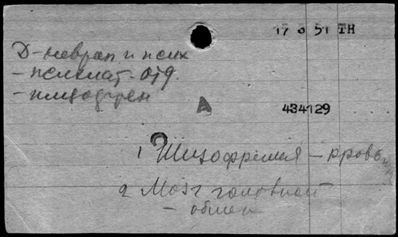 17 8 51 TH
Д-неврол и псих
- психиат. отд.
- шизофрен
A
434129
? 1 Шизофрения - кровь
2 Мозг головной
- обмен